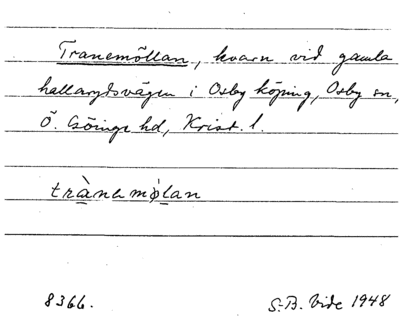 Tranemöllan, kvarn vid gamla
hallarydsvägen i Osby köping, Osby sn,
Ö. Göinge hd, Krist. l.
trànemø̀lan
8366.
S.-B. Vide 1948